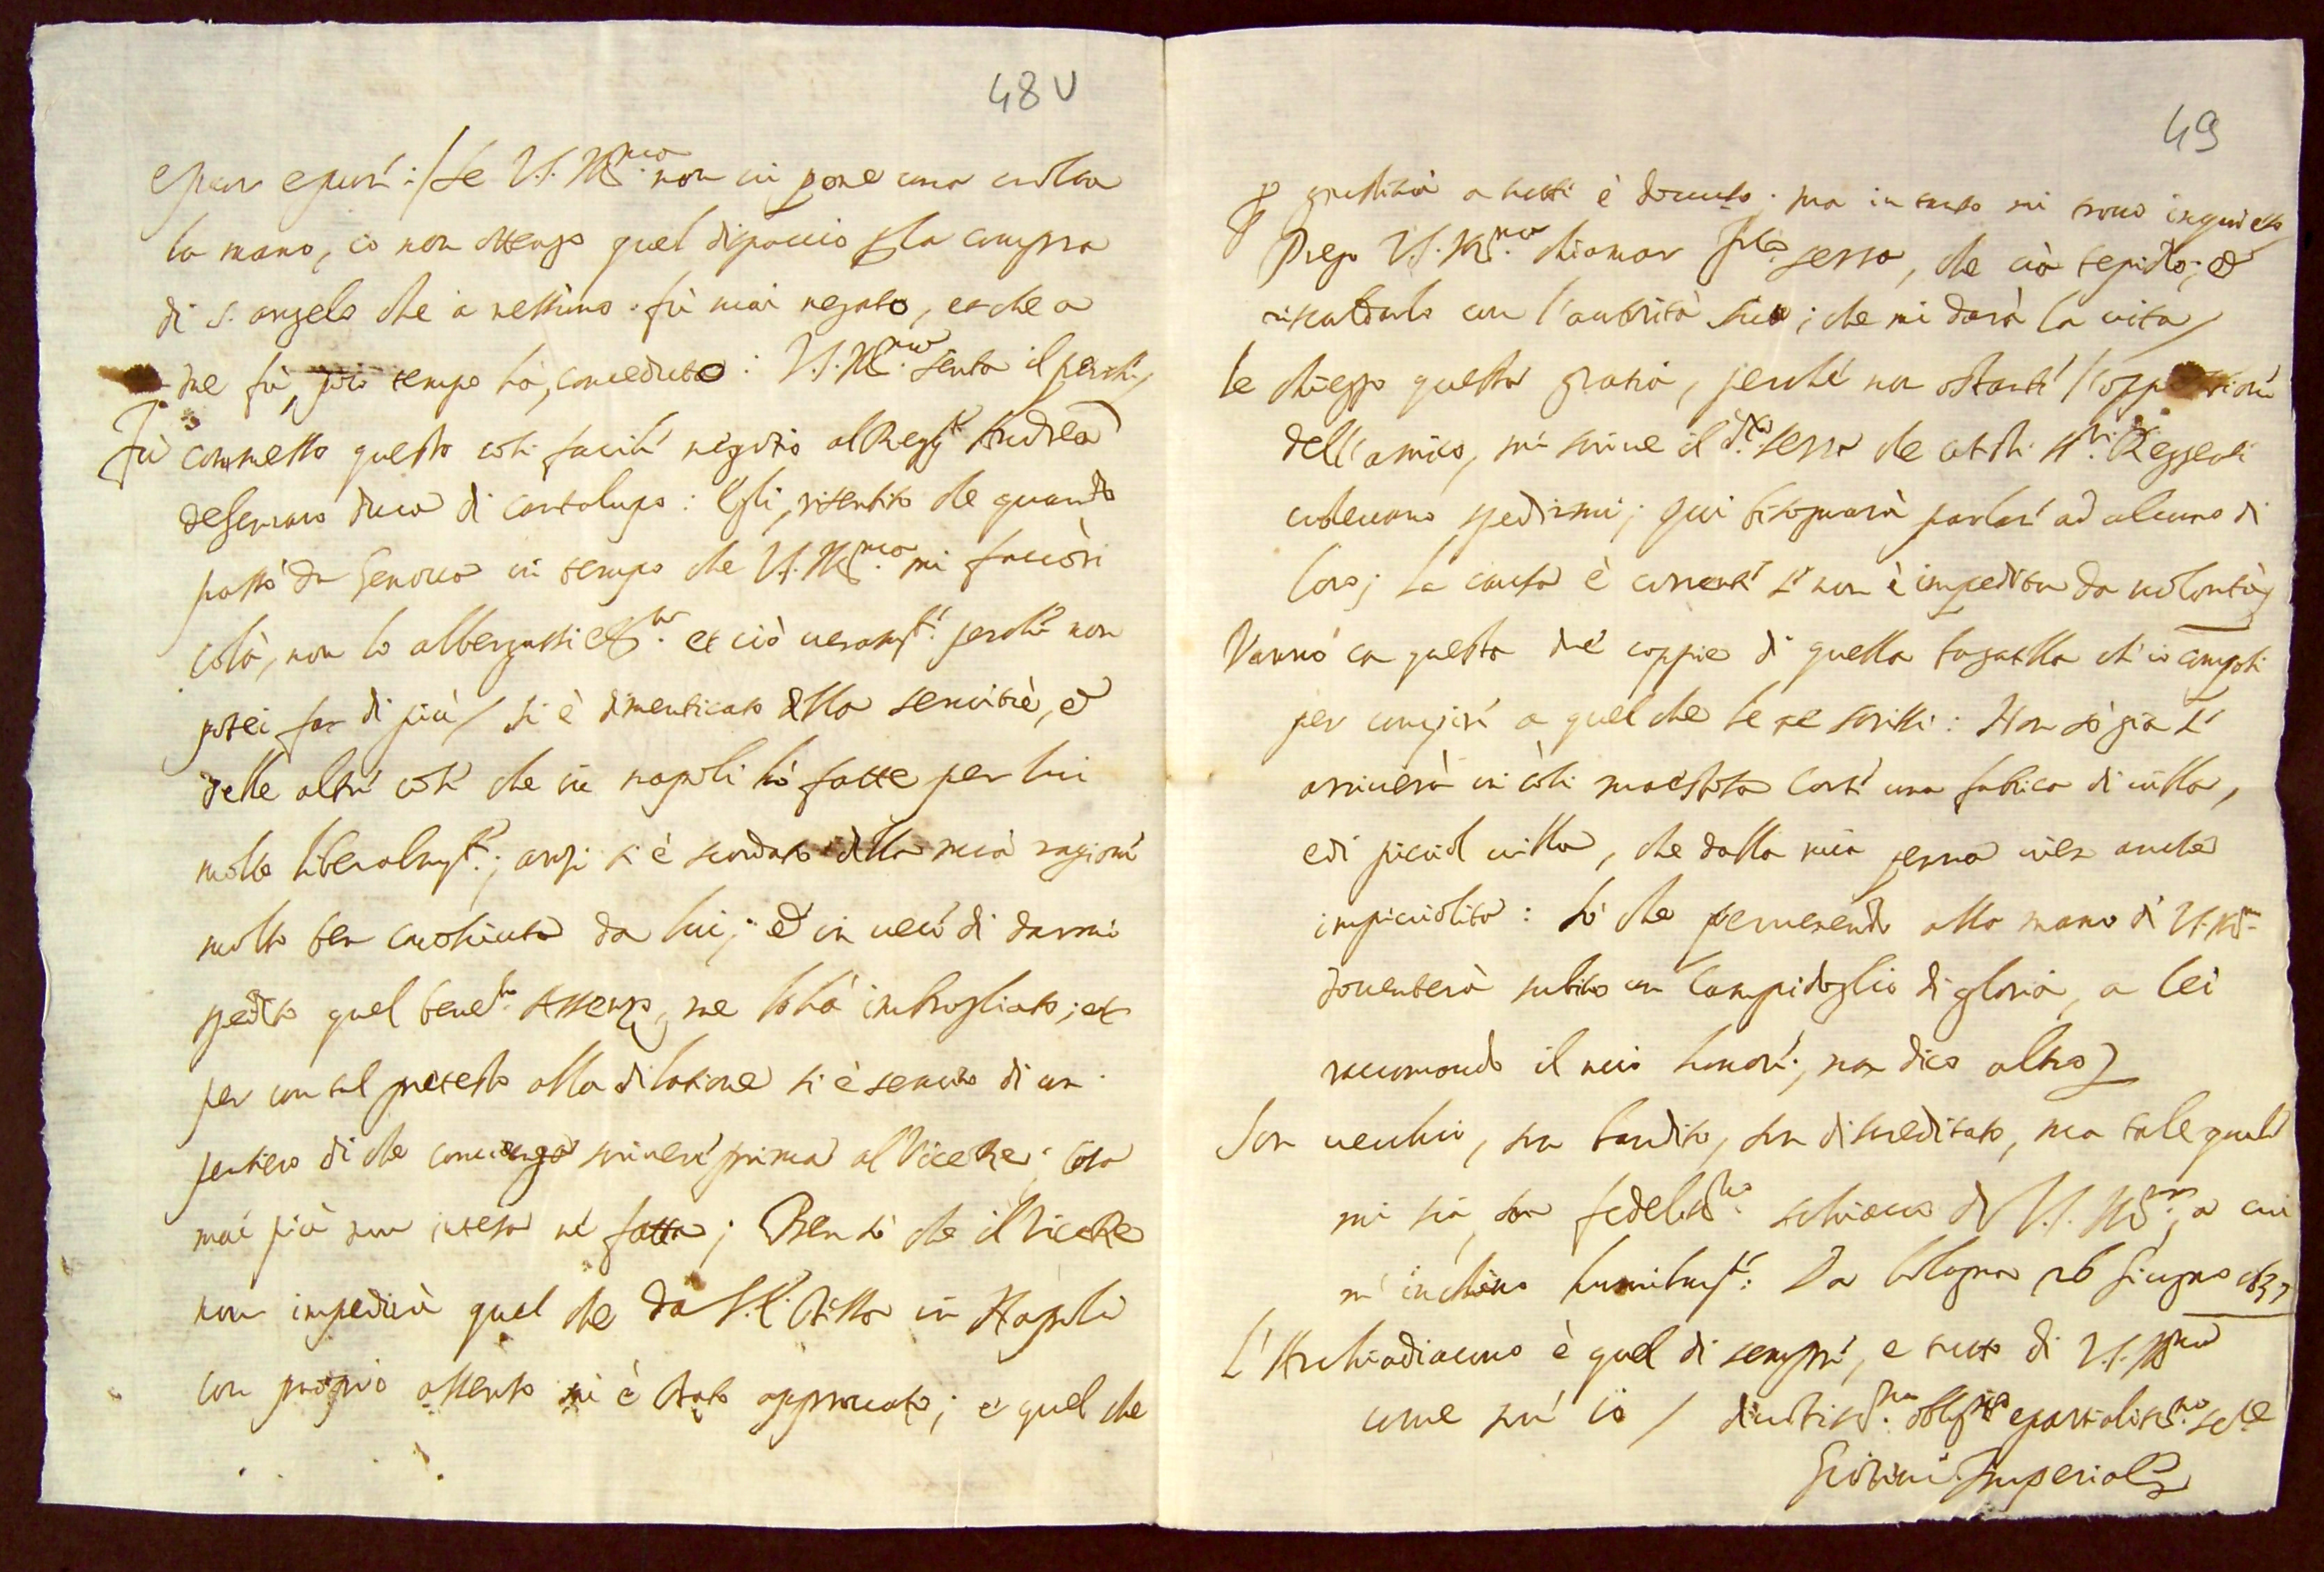 48 v
epur epur: / se V.S. Ill.ma non ui pone una uolta
la mano, io non ottengo quel dispaccio p la compra
di s. angelo che à nessuno fù mai negato, et che a
me fù, poco tempo hà, conceduto: V.S. Ill.ma senta il perche /
Fù commesso questo così facile negotio al Regg.te Andrea
 duca di cantalupo: Egli, risentito che quando
passò da Genoua in tempo che V.S. Ill.ma mi fauorì
colà, non lo albergassi et.ra et ciò ueram.te perche non
potei far di più / si è dimenticato della seruitù, et
delle altre cose che in napoli hò fatte per lui
molto liberalm.te; anzi si è scordato della mia ragione
molto ben conosciuta da lui; et in uece di darmi
spedito quel bened.to assenso, me lo hà imbrogliato; et
per con tal pretesto alla dilatione si è seruito di un
pensiero di che conuenga scriuere prima al ViceRe; cosa
mai più nun intesa ne fatta; Ben sò che il ViceRe
non impedirà quel che da S.E. stessa in Napoli
con proprio assenso mi è stato approuato; e quel che
49
p giustitia a tutti è douuto; ma in tanto mi trouo inquieto /
Prego V.S. Ill.ma chiamar serra, che cià tepido; et
riscaldarlo con l'autorità sua; che mi darà la uita /
le chieggo questa gratia, perche non ostante l'oppositioni
dell'amico, mi scriue il d.to serra che cotesti ss.ri Reggenti
uoleuano spedirmi; qui bisognarà parlare ad alcuno di
loro; la causa è corrente se non è impedita da uolontà /
Vanno con questa due coppie di quella fauatella ch'io composi
per compire a quel che le ne scrissi: Non sò già se
arriuerà in così maestosa corte una fabrica di uilla,
e di picciol uilla, che dalla mia penna uien anche
impicciolita: sò che peruenendo alla mano di V.S. Ill.ma
douenterà subito un Campidoglio di gloria, a lei
raccomando il mio honore; non dico altro /
Son uecchio, son bandito, son discreditato, ma tale quale
mi sia, son fedeliss.mo schiauo di V.S. Ill.ma, a cui
m'inchino humilm.te: Da bologna 26 Giugno 1637
L'Archidiacono è quel di sempre, e tutto di V.S. Ill.ma
come son io / diuotiss.mo obblig.mo e partialiss.mo se.re
Gio: Imperiale